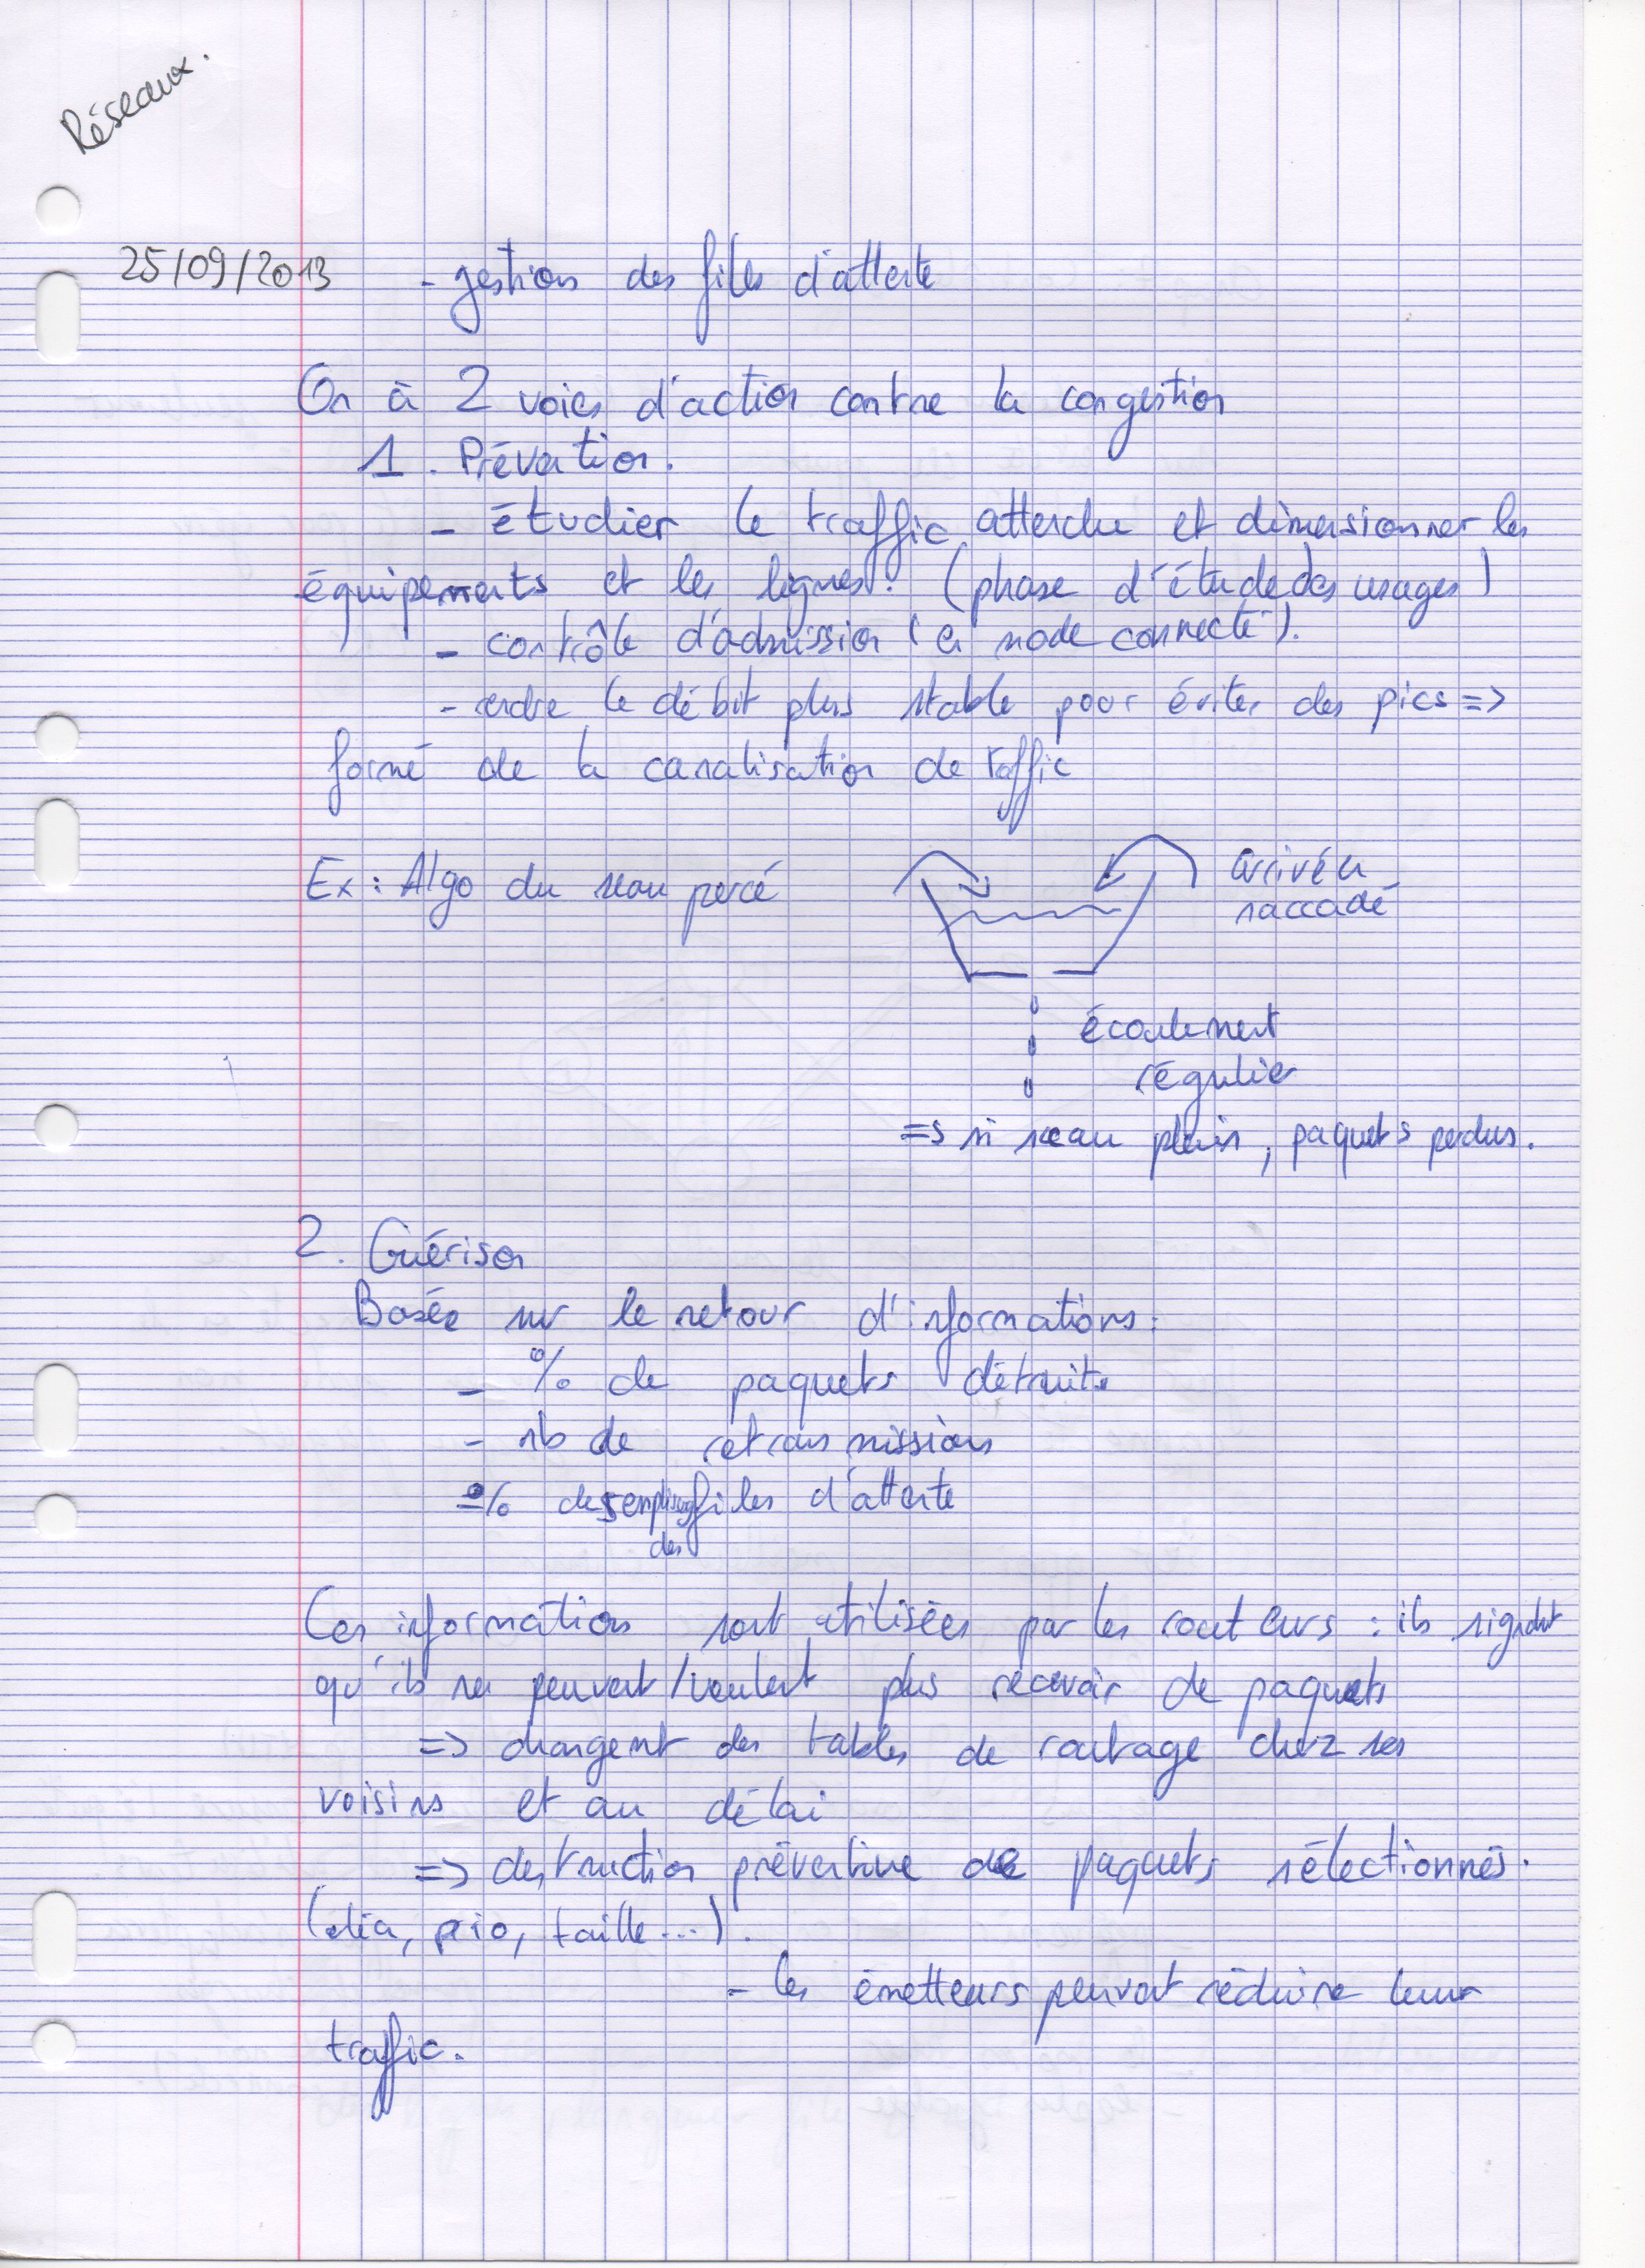 Réseaux.
25/09/2013
- gestions des files d'attente
On à 2 voies d'action contre la congestion
1. Prévention.
- étudier le traffic attendu et dimensionner les
équipements et les lignes. (phase d'étude des usages)
- contrôle d'admission (en mode connecté).
- rendre le débit plus stable pour éviter des pics =>
forme de la canalisation de traffic
Ex : Algo du seau percé
arrivée
saccadé
écoulement
régulier
=> si seau plein, paquets perdus.
2. Guérison
Basée sur le retour d'informations :
- % de paquets détruits
- nb de retransmissions
- % des files d'attente
des
Ces informations sont utilisées par les routeurs : ils signalent
qu'ils ne peuvent/veulent plus recevoir de paquets
=> changent des tables de routage chez ses
voisins et au délai
=> destruction préventive de paquets sélectionnés.
(prio, taille...).
- les émetteurs peuvent réduire leur
traffic.